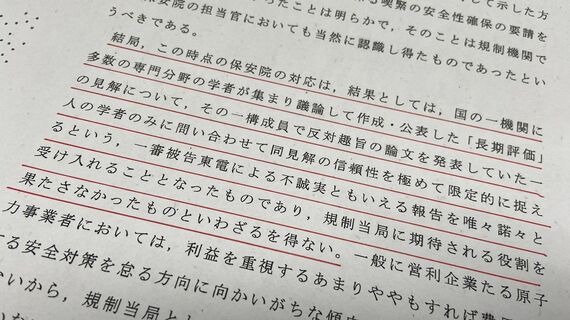 る喫緊の安全性確保の要請を
保安院の担当官においても当然に認識し得たものであったとい
ったことは明らかで，そのことは規制機関で
うべきである。
結局，この時点の保安院の対応は，結果としては，国の一機関に
多数の専門分野の学者が集まり議論して作成・公表した「長期評価」
の見解について，その一構成員で反対趣旨の論文を発表していた一
人の学者のみに問い合わせて同見解の信頼性を極めて限定的に捉え
るという，一審被告東電による不誠実ともいえる報告を唯々諾々と
受け入れることとなったものであり，規制当局に期待される役割を
果たさなかったものといわざるを得ない。一般に営利企業たる原子
力事業者においては，利益を重視するあまりややもすれば費
する安全対策を怠る方向に向かいがちな傾
いから，規制当局と